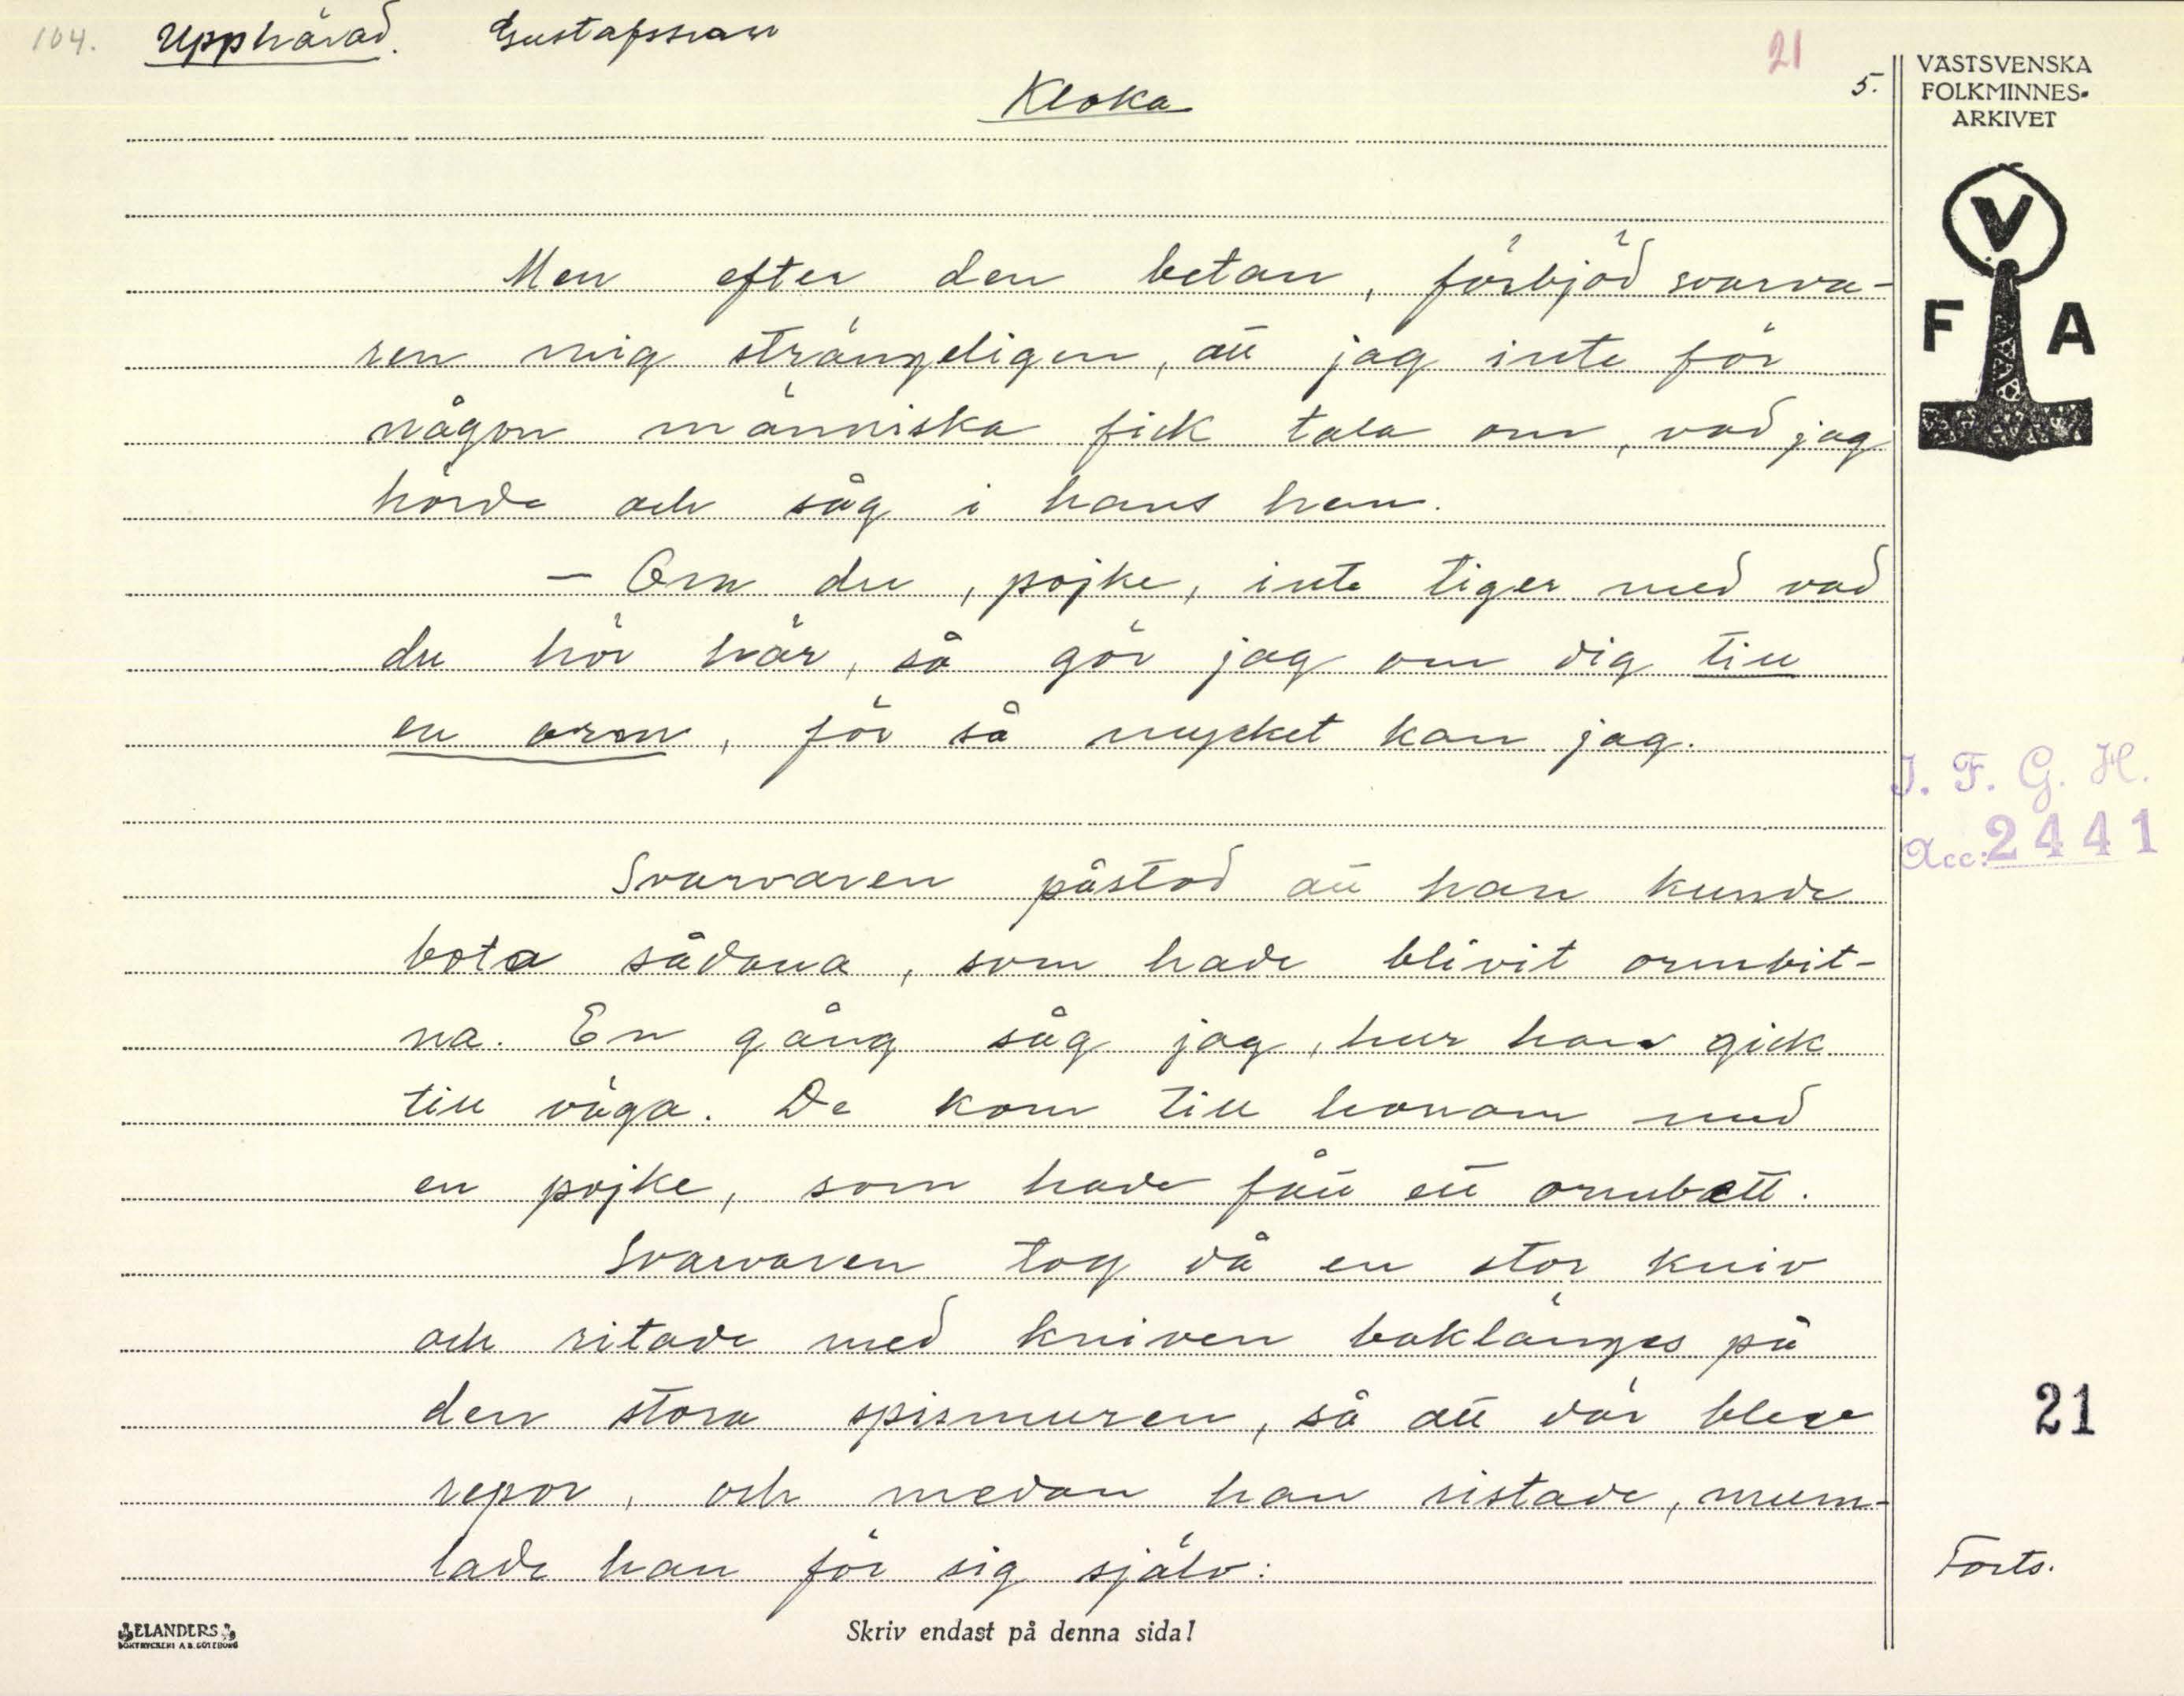 104. Upphärad. Gustafsson
21
5.
Kloka
VÄSTSVENSKA
FOLKMINNES-
ARKIVET
V
F A
Men efter den betan, förbjöd svarva-
ren mig strängeligen, att jag inte för
någon människa fick tala om, vad jag
hörde och såg i hans hem.
— Om du, pojke, inte tiger med vad
du hör här, så gör jag om dig till
en orm, för så mycket kan jag.
I. F. G. H.
Acc: 2441
Svarvaren påstod att han kunde
bota sådana, som hade blivit ormbit-
na. En gång såg jag, hur han gick
till väga. De kom till honom med
en pojke, som hade fått ett ormbett.
Svarvaren tog då en stor kniv
och ritade med kniven baklänges på
den stora spismuren, så att där bleve
repor, och medan han ristade, mum-
lade han för sig själv:
21
Forts.
ELANDERS
BOKTRYCKERI A.B. GÖTEBORG
Skriv endast på denna sida!